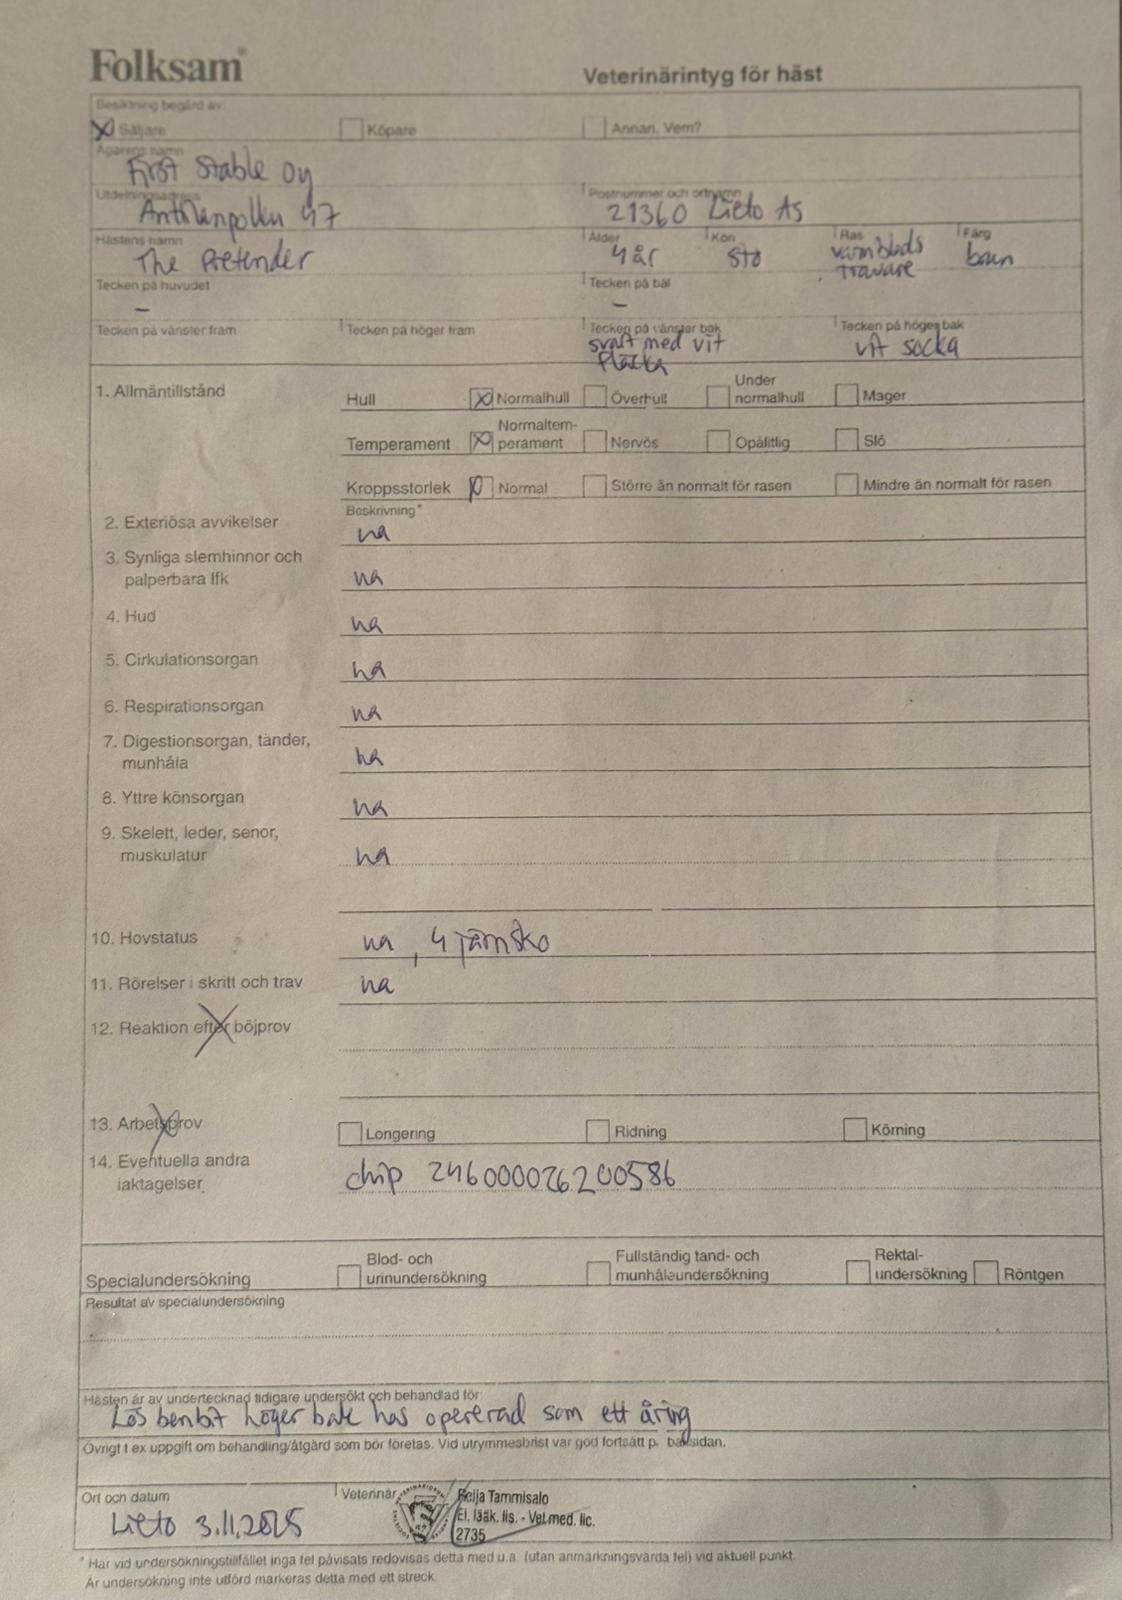 Folksam
Veterinärintyg för häst
Besiktning begärd av:
Säljare Köpare Annan. Vem?
Ägarens namn
First Stable oy
Utdelningsadress Postnummer och ortnamn
47 21360 Lieto As
Hästens namn Ålder Kön Ras Färg
The Pretender 4 år sto varmblods travare brun
Tecken på huvudet Tecken på bål
– –
Tecken på vänster fram Tecken på höger fram Tecken på vänster bak Tecken på höger bak
svart med vit vit socka
fläcka
1. Allmäntillstånd
Hull Normalhull Överhull Under normalhull Mager
Temperament Normaltem-perament Nervös Opålitlig Slö
Kroppsstorlek Normal Större än normalt för rasen Mindre än normalt för rasen
Beskrivning*
2. Exteriösa avvikelser ua
3. Synliga slemhinnor och
palperbara lfk ua
4. Hud ua
5. Cirkulationsorgan ua
6. Respirationsorgan ua
7. Digestionsorgan, tänder,
munhåla ua
8. Yttre könsorgan ua
9. Skelett, leder, senor,
muskulatur ua
10. Hovstatus ua, 4 järnsko
11. Rörelser i skritt och trav ua
12. Reaktion efter böjprov
13. Arbetsprov Longering Ridning Körning
14. Eventuella andra
iaktagelser chip 246000026200586
Specialundersökning Blod- och urinundersökning Fullständig tand- och munhåleundersökning Rektal-undersökning Röntgen
Resultat av specialundersökning
Hästen är av undertecknad tidigare undersökt och behandlad för:
Lös benbit höger bak has opererad som ett åring
Övrigt t ex uppgift om behandling/åtgärd som bör företas. Vid utrymmesbrist var god fortsätt på baksidan.
Ort och datum Veterinär
Lieto 3.11.2025
Reija Tammisalo
El. lääk. lis. - Vet.med. lic.
2735
* Har vid undersökningstillfället inga fel påvisats redovisas detta med u.a. (utan anmärkningsvärda fel) vid aktuell punkt.
Är undersökning inte utförd markeras detta med ett streck.